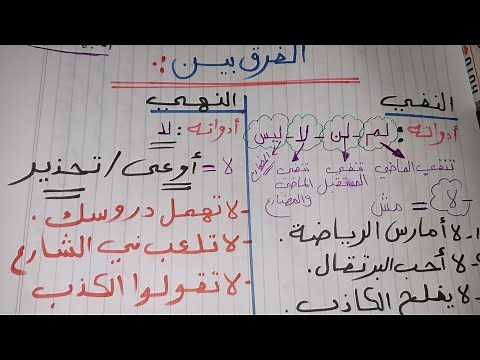 الفرق بين :.
النفي
أدواته : لم - لن - لا - ليس
تنفي الماضي تنفي المستقبل تنفي الماضي والمضارع
- لا = مش
1- لا أمارس الرياضة.
- لا أحب البرتقال.
- لا يفلح الكاذب.
النهي
أدواته : لا
لا = أوعى / تحذير
- لا تهمل دروسك.
- لا تلعب في الشارع
- لا تقولوا الكذب